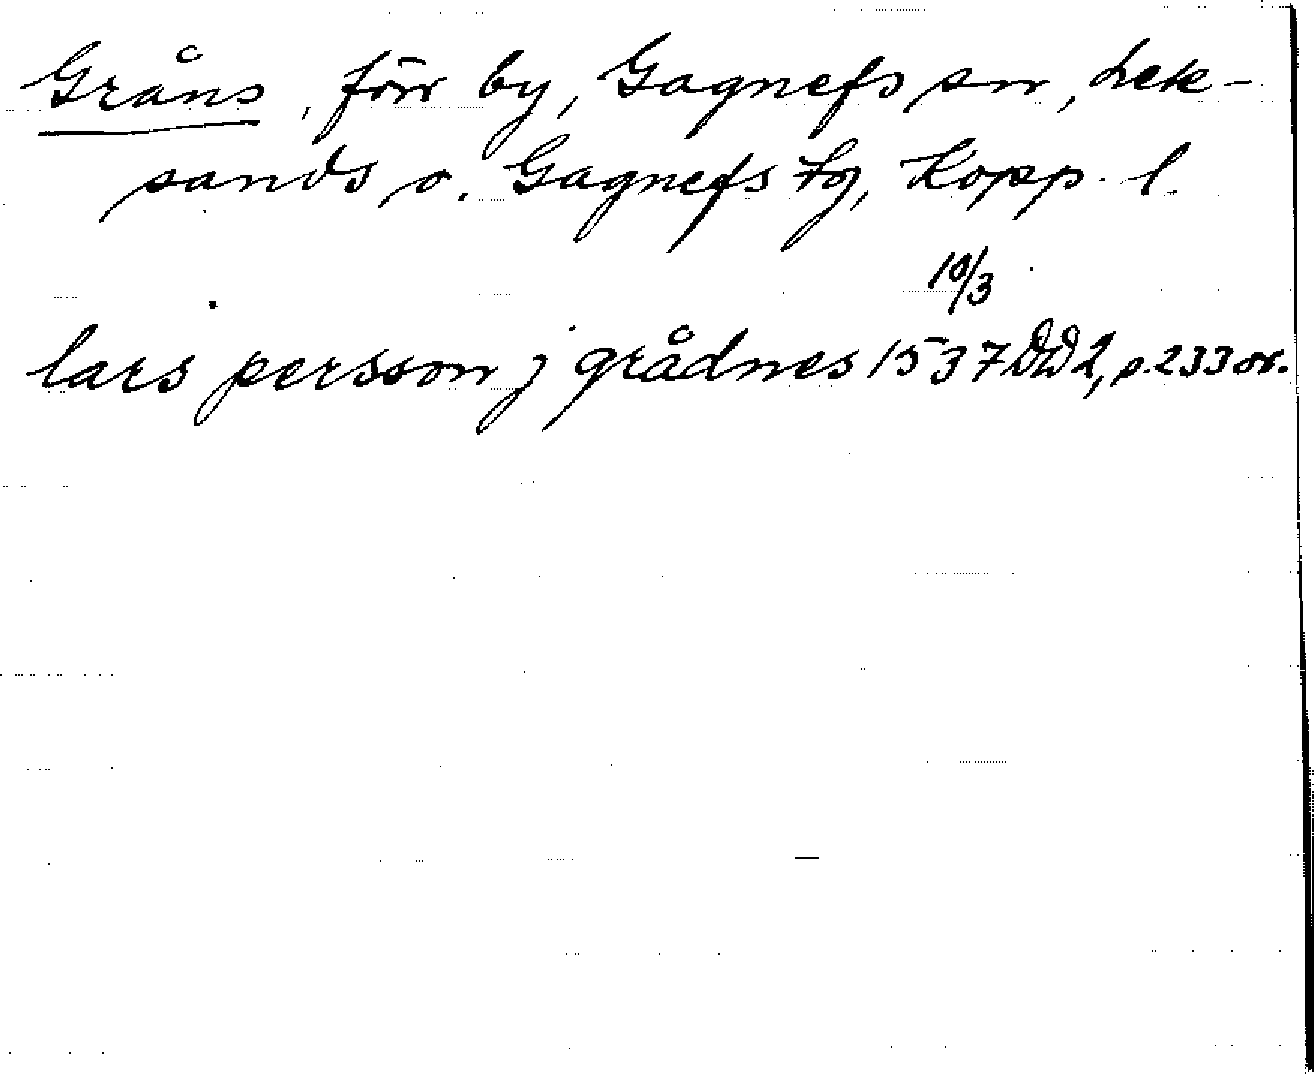 Gråns, förr by, Gagnefs sn, Lek-
sands o. Gagnefs tg, Kopp. l.
10/3
lars persson j grådnes 1537 DD 2, p. 233 or.